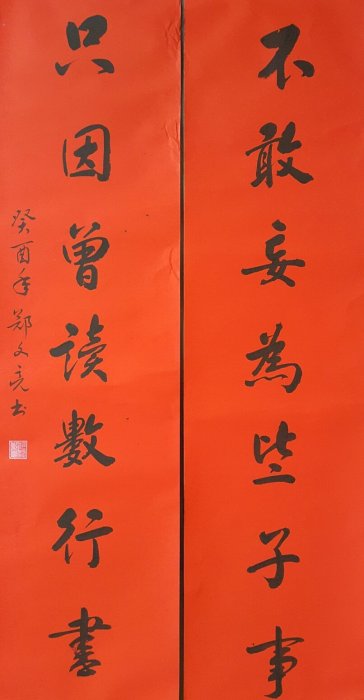 不敢妄為些子事
只因曾讀數行書
癸酉年鄭文亮书